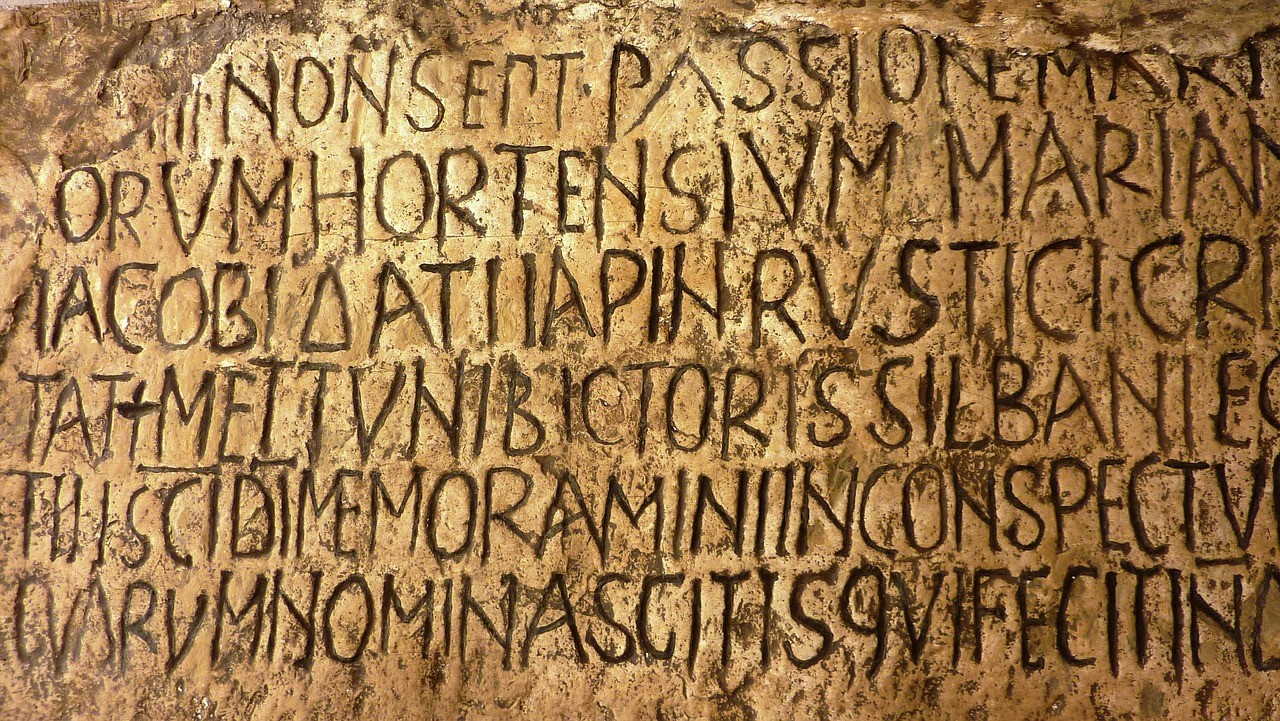 IIII NON SEPT PASSIONE MARTI
ORVM HORTENSIVM MARIAN
IACOBI DATI IAPIN RVSTICI CRI
TAT METTVNI BICTORIS SILBANI EG
TII SCI DI MEMORAMINI IN CONSPECTV
QVARVM NOMINA SCITIS QVI FECIT IN D